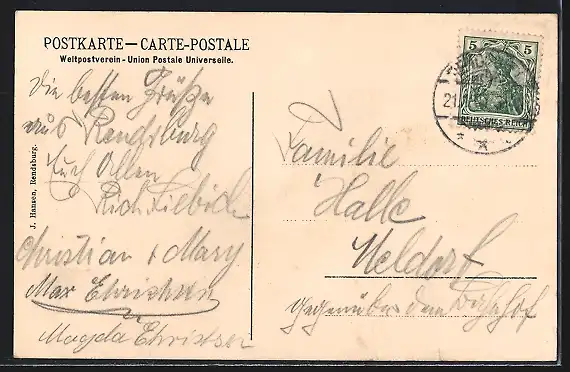 POSTKARTE — CARTE-POSTALE
Weltpostverein - Union Postale Universelle.
Die besten Grüße
aus Rendsburg
Euch Allen
Rich. Liebich
Christian & Mary
Max Christensen
Magda Christser
J. Hansen, Rendsburg.
5 5
DEUTSCHES REICH
21.
Familie
Halle
Meldorf
gegenüber dem Bahnhof